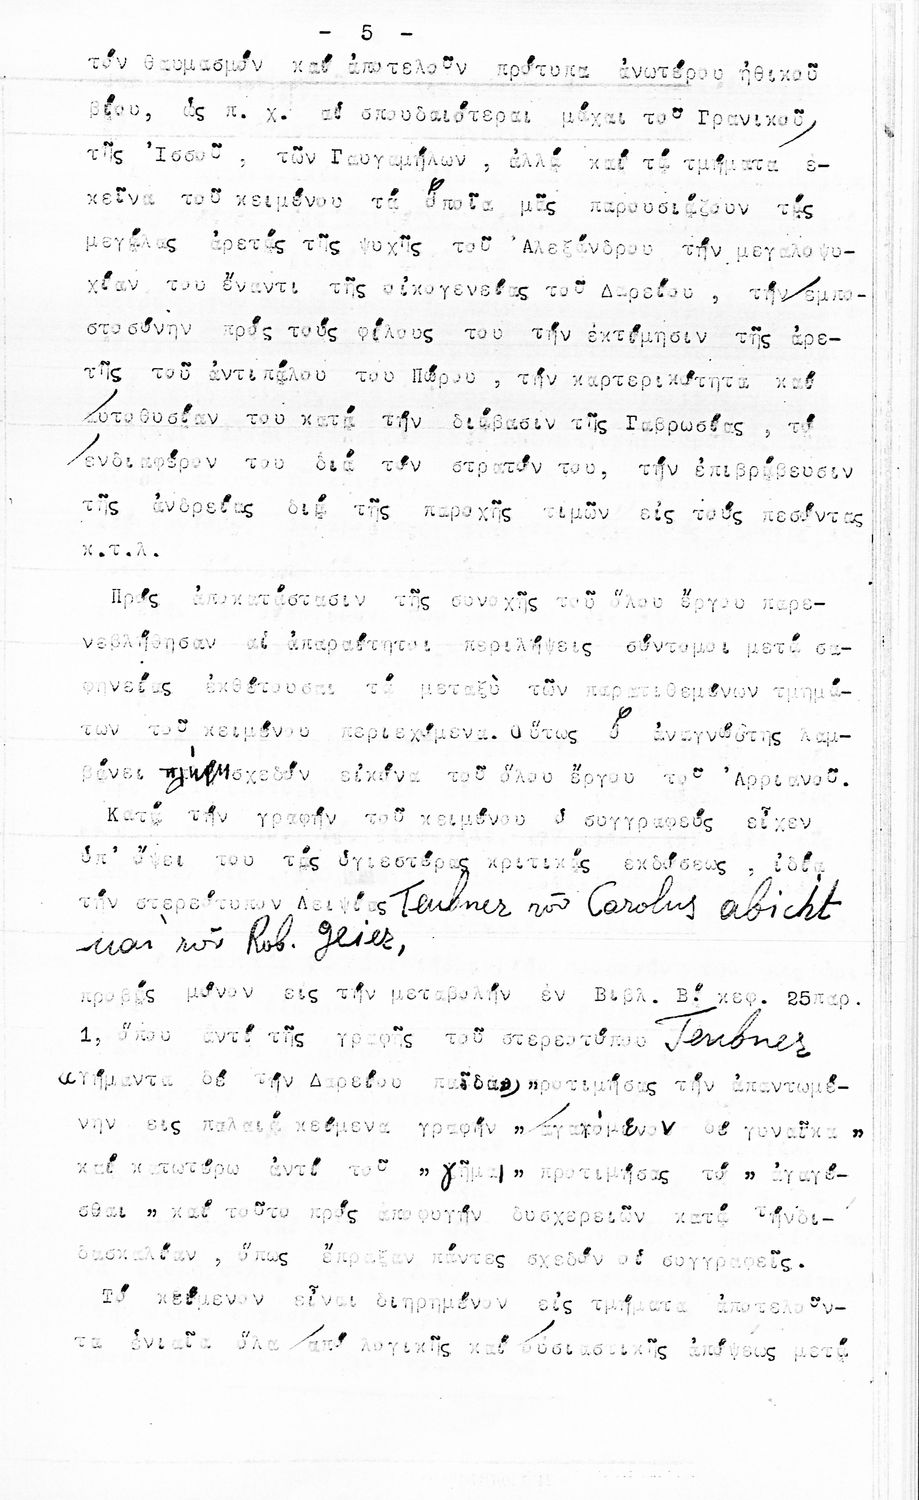 - 5 -
τόν θαυμασμόν καί ἀποτελοῦν πρότυπα ἀνωτέρου ἠθικοῦ
βίου, ὡς π. χ. αἱ σπουδαιότεραι μάχαι τοῦ Γρανικοῦ,
τῆς Ἰσσοῦ , τῶν Γαυγαμήλων , ἀλλά καί τά τμήματα ἐ-
κεῖνα τοῦ κειμένου τά ὁποῖα μᾶς παρουσιάζουν τάς
μεγάλας ἀρετάς τῆς ψυχῆς τοῦ Ἀλεξάνδρου τήν μεγαλοψυ-
χίαν του ἔναντι τῆς οἰκογενείας τοῦ Δαρείου , τήν ἐμπο-
στοσύνην πρός τούς φίλους του τήν ἐκτίμησιν τῆς ἀρε-
τῆς τοῦ ἀντιπάλου του Πώρου , τήν καρτερικότητα καί
αὐτοθυσίαν του κατά τήν διάβασιν τῆς Γαδρωσίας , τό
ἐνδιαφέρον του διά τόν στρατόν του, τήν ἐπιβράβευσιν
τῆς ἀνδρείας διά τῆς παροχῆς τιμῶν εἰς τούς πεσόντας
κ.τ.λ.
Πρός ἀποκατάστασιν τῆς συνοχῆς τοῦ ὅλου ἔργου παρε-
νεβλήθησαν αἱ ἀπαραίτητοι περιλήψεις σύντομοι μετά σα-
φηνείας ἐκθέτουσαι τά μεταξὺ τῶν παρατιθεμένων τμημά-
των τοῦ κειμένου περιεχόμενα. Οὕτως ὁ ἀναγνώστης λαμ-
βάνει πλήρη σχεδόν εἰκόνα τοῦ ὅλου ἔργου τοῦ Ἀρριανοῦ.
Κατά τήν γραφήν τοῦ κειμένου ὁ συγγραφεύς εἶχεν
ὑπ' ὄψει του τάς ὑγιεστέρας κριτικάς ἐκδόσεως , ἰδίᾳ
τήν στερεότυπον Λειψίας Teubner τοῦ Carolus abicht
καὶ τοῦ Rob. geier,
προβάς μόνον εἰς τήν μεταβολήν ἐν Βιβλ. Β! κεφ. 25παρ.
1, ὅπου ἀντί τῆς γραφῆς τοῦ στερεοτύπου Teubner
«γήμαντα δέ τήν Δαρείου παῖδα» προτιμήσας τήν ἀπαντωμέ-
νην εἰς παλαιά κείμενα γραφήν " ἀγαγόμενον δέ γυναῖκα "
καί κατωτέρω ἀντί τοῦ " γῆμαι " προτιμήσας τό " ἀγαγέ-
σθαι " καί τοῦτο πρός ἀποφυγήν δυσχερειῶν κατά τήνδι-
δασκαλίαν , ὅπως ἔπραξαν πάντες σχεδόν οἱ συγγραφεῖς.
Τό κείμενον εἶναι διηρημένον εἰς τμήματα ἀποτελοῦν-
τα ἑνιαῖα ὅλα ἀπό λογικῆς καί οὐσιαστικῆς ἀπόψεως μετά